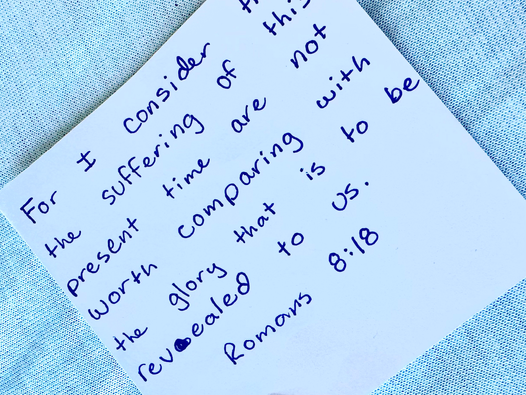 For I consider
the suffering of this
present time are not
worth comparing with
the glory that is to be
revealed to us.
Romans 8:18